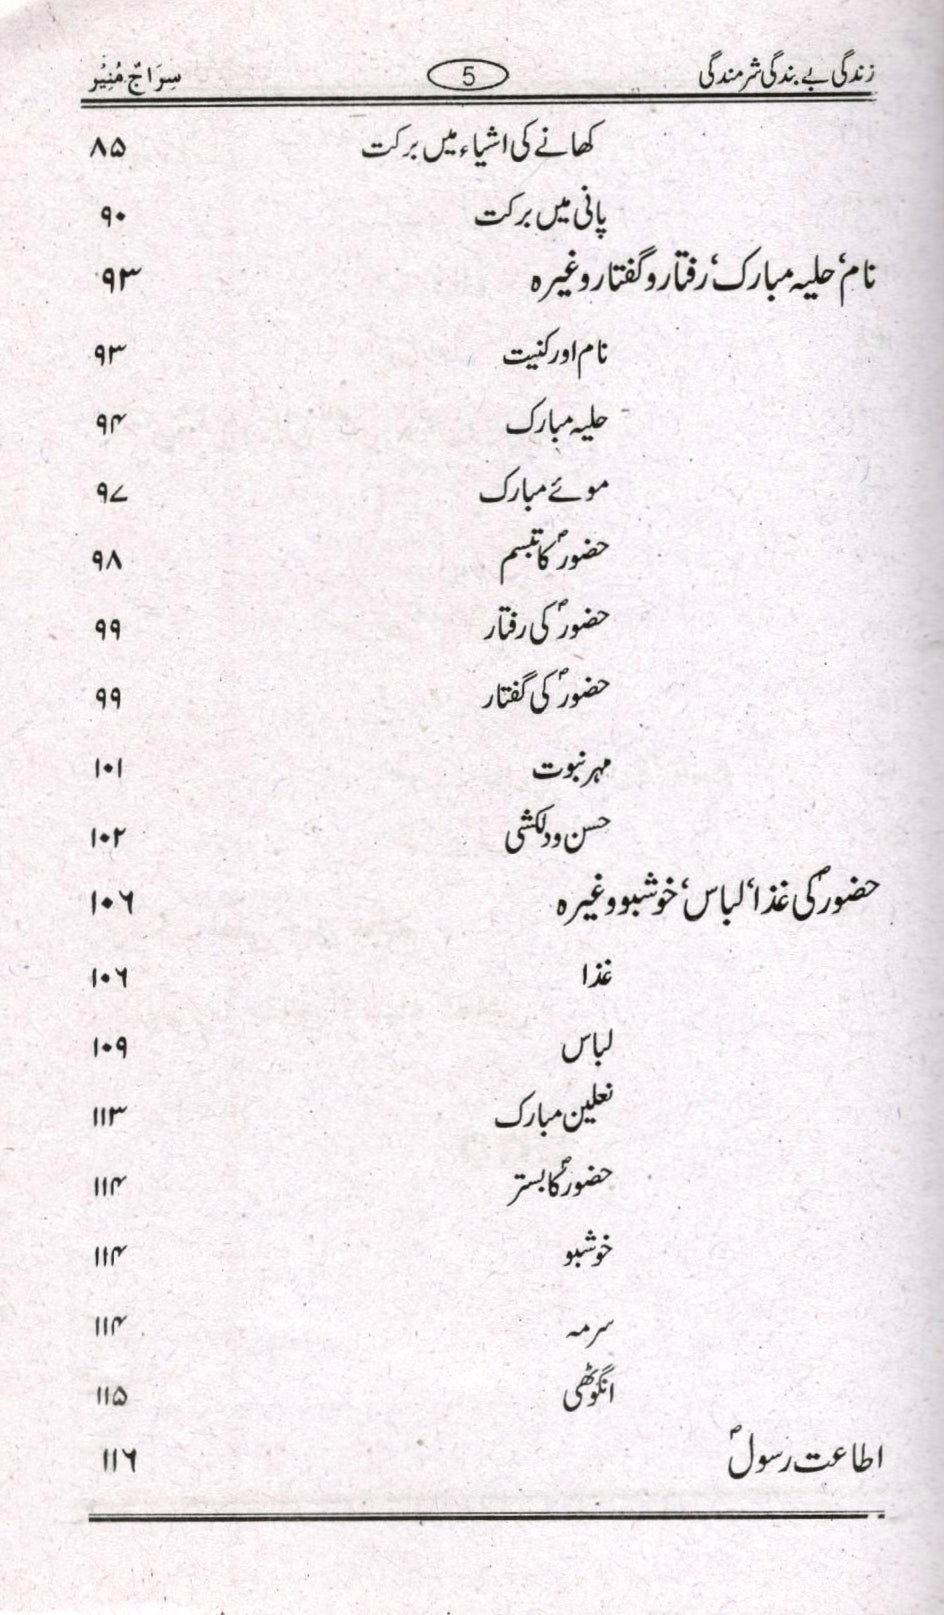 زندگی بے بندگی شرمندگی 5 سِرَاجٌ مُنِیْر
کھانے کی اشیاء میں برکت ۸۵
پانی میں برکت ۹۰
نام‘ حلیہ مبارک‘ رفتار و گفتار وغیرہ ۹۳
نام اور کنیت ۹۳
حلیہ مبارک ۹۴
موئے مبارک ۹۷
حضورؐ کا تبسم ۹۸
حضورؐ کی رفتار ۹۹
حضورؐ کی گفتار ۹۹
مہر نبوت ۱۰۱
حسن و دلکشی ۱۰۲
حضورؐ کی غذا‘ لباس‘ خوشبو وغیرہ ۱۰۶
غذا ۱۰۶
لباس ۱۰۹
نعلین مبارک ۱۱۳
حضورؐ کا بستر ۱۱۴
خوشبو ۱۱۴
سرمہ ۱۱۴
انگوٹھی ۱۱۵
اطاعت رسولؐ ۱۱۶